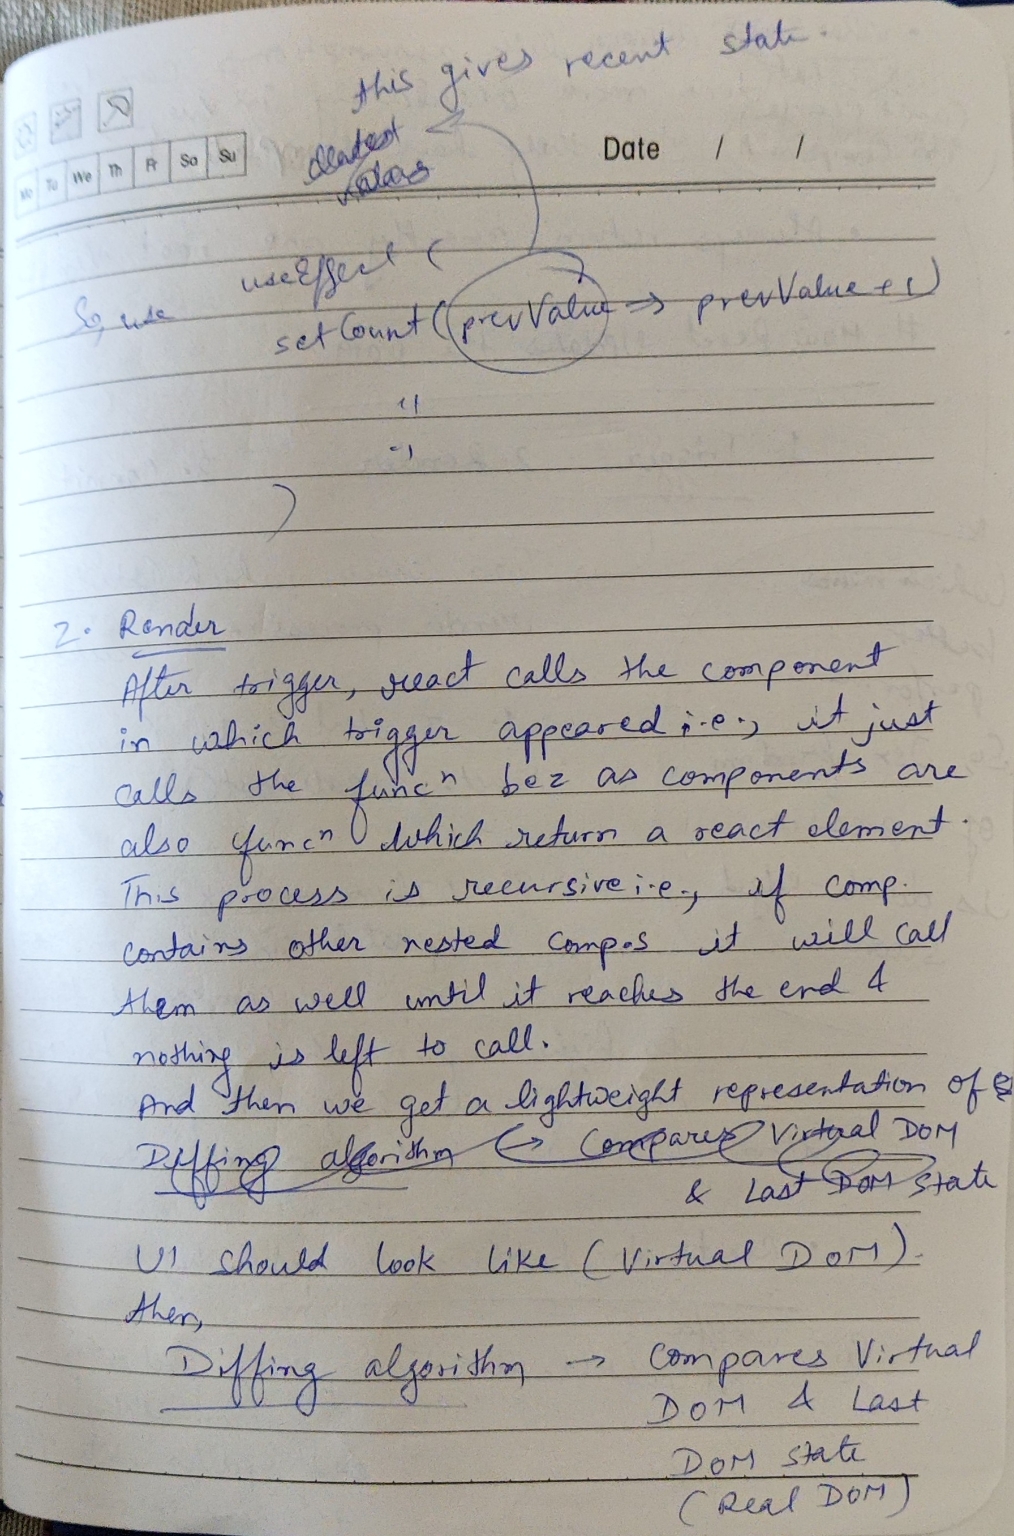 this gives recent state.
Mo Tu We Th Fr Sa Su
Date / /
useEffect (
So, use
setCount((prevValue => prevValue + 1)
"
"
)
2. Render
After trigger, react calls the component
in which trigger appeared i.e., it just
calls the funcn bcz as components are
also funcn which return a react element.
This process is recursive i.e., if comp.
contains other nested comp.s it will call
them as well until it reaches the end &
nothing is left to call.
And then we get a lightweight representation of
Diffing algorithm → Compares Virtual DOM
& Last DOM state
UI should look like (Virtual DOM).
then,
Diffing algorithm → Compares Virtual
DOM & Last
DOM state
(Real DOM)